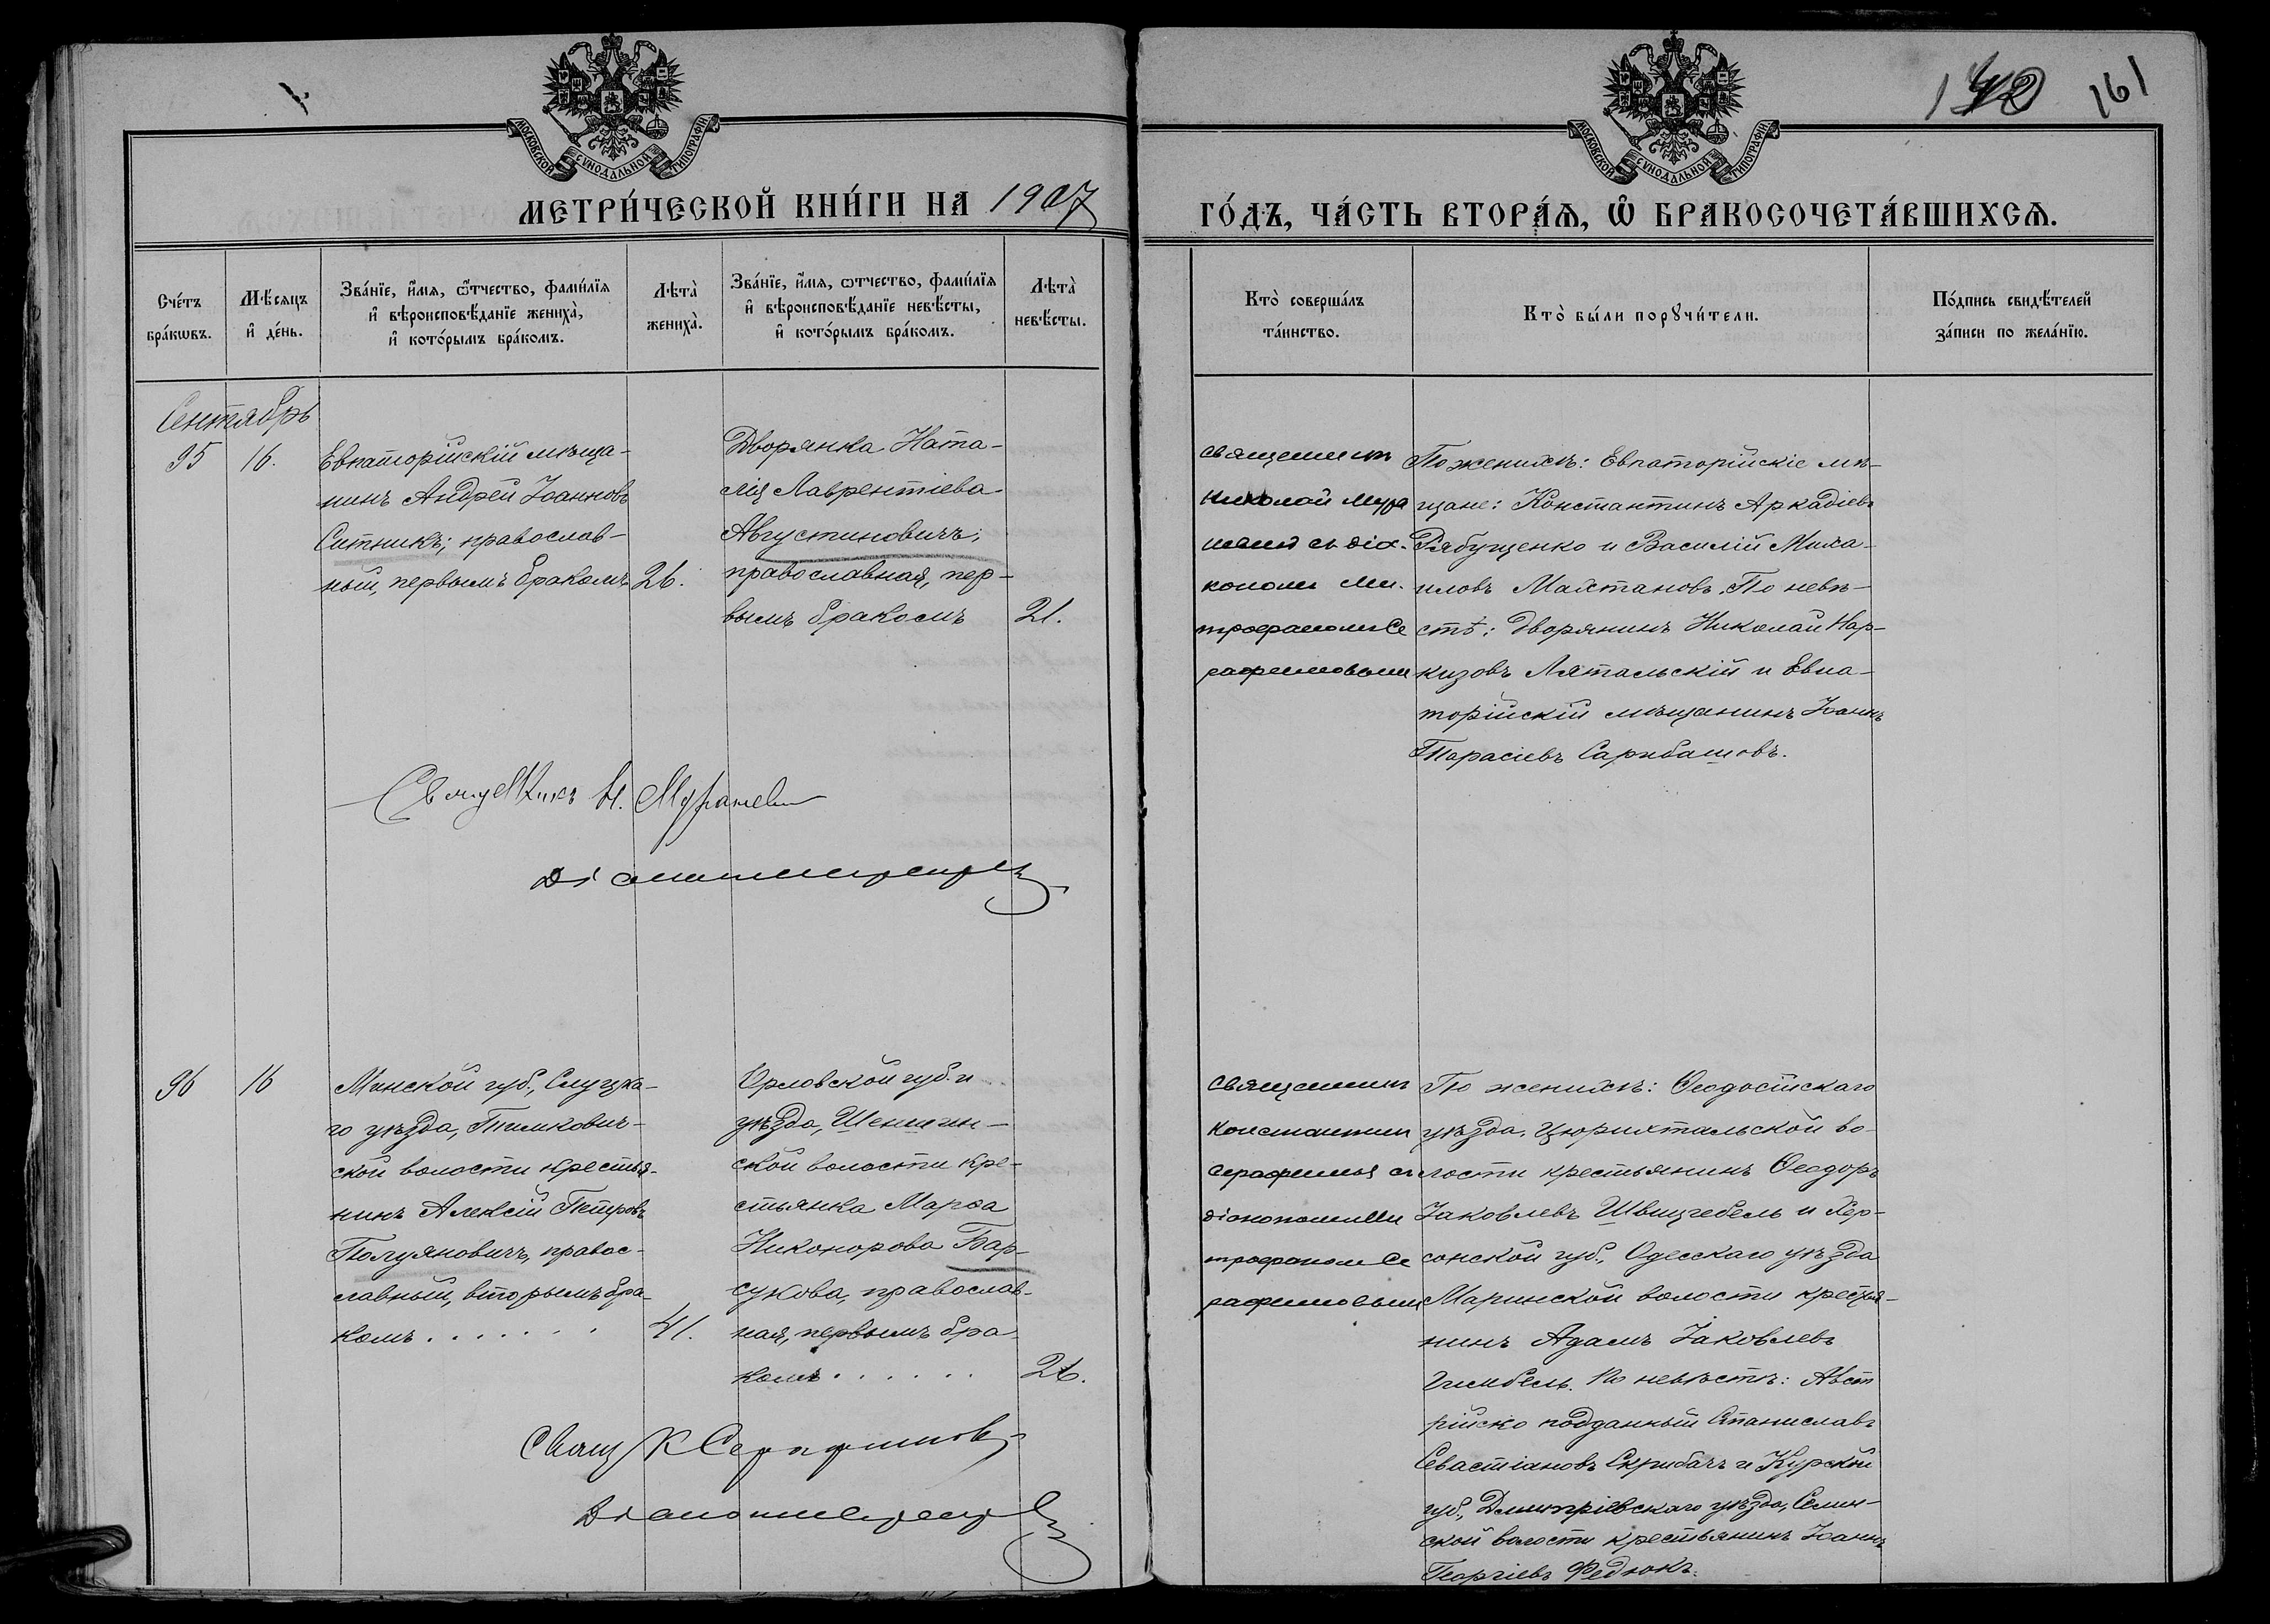 140 161
МОСКОВСКОЙ СѴНОДАЛЬНОЙ ТИПОГРАФІИ
МОСКОВСКОЙ СѴНОДАЛЬНОЙ ТИПОГРАФІИ
МЕТРИ́ЧЕСКОЙ КНИ́ГИ НА 1907
ГО́ДЪ, ЧА́СТЬ ВТОРА́Ѧ, Ѡ҆ БРАКОСОЧЕТА́ВШИХСѦ.
Сче́тъ
бра́кѡвъ.
Мѣ́сяцъ
и҆ де́нь.
Зва́нїе, и҆́мя, ѻ҆́тчество, фами́лїя
и҆ вѣроисповѣ́данїе жениха̀,
и҆ кото́рымъ бра́комъ.
Лѣта̀
жениха̀.
Зва́нїе, и҆́мя, ѻтчество, фами́лїя
и҆ вѣроисповѣ́данїе невѣ́сты,
и҆ кото́рымъ бра́комъ.
Лѣта̀
невѣ́сты.
Кто̀ соверша́лъ
та́инство.
Кто̀ бы́ли порꙋчи́тели.
По́дпись свидѣ́телей
за́писи по жела́нїю.
Сентябрь
95
16.
Евпаторійскій мѣща-
нинъ Андрей Іоанновъ
Ситникъ; православ-
ный, первымъ бракомъ
26.
Дворянка Ната-
лія Лаврентіева
Августиновичъ;
православная, пер-
вымъ бракомъ
21.
Священникъ
Николай Мура
съ діа-
кономъ Ми-
трофаномъ Се
рафимовымъ
По женихѣ: Евпаторійскіе мѣ-
щане: Константинъ Аркадіевъ
Рябущенко и Василій Миха-
иловъ Майстановъ. По невѣ-
стѣ: дворянинъ Николай Нар-
кизовъ Лятальскій и Евпа-
торійскій мѣщанинъ Іоаннъ
Тарасіевъ Сарибашовъ.
Священникъ Н.
96
16
Минской губ., Слуцка-
го уѣзда, Тимкович-
ской волости крестья-
нинъ Алексій Петровъ
Полуяновичъ, правос-
лавный, вторымъ бра-
комъ . . . . . . .
41.
Орловской губ. и
уѣзда, Шеншин-
ской волости кре-
стьянка Марѳа
Никонорова Бар-
сукова, православ-
ная, первымъ бра-
комъ . . . . . .
26.
Священникъ
Константинъ
Серафимовъ съ
діакономъ Ми
трофаномъ Се
рафимовымъ
По женихѣ: Ѳеодосійскаго
уѣзда, Цюрихтальской во-
лости крестьянинъ Ѳеодоръ
Іаковлевъ Швицгебель и Хер-
сонской губ., Одесскаго уѣзда
Маринской волости крестья-
нинъ Адамъ Іаковлевъ
Гимбель. По невѣстѣ: Авст
рійско подданный Станиславъ
Севастіановъ Скрибачъ и Курской
губ., Дмитріевскаго уѣзда, Селин-
ской волости крестьянинъ Іоаннъ
Георгіевъ Федюкъ.
Свящ К Серафимовъ